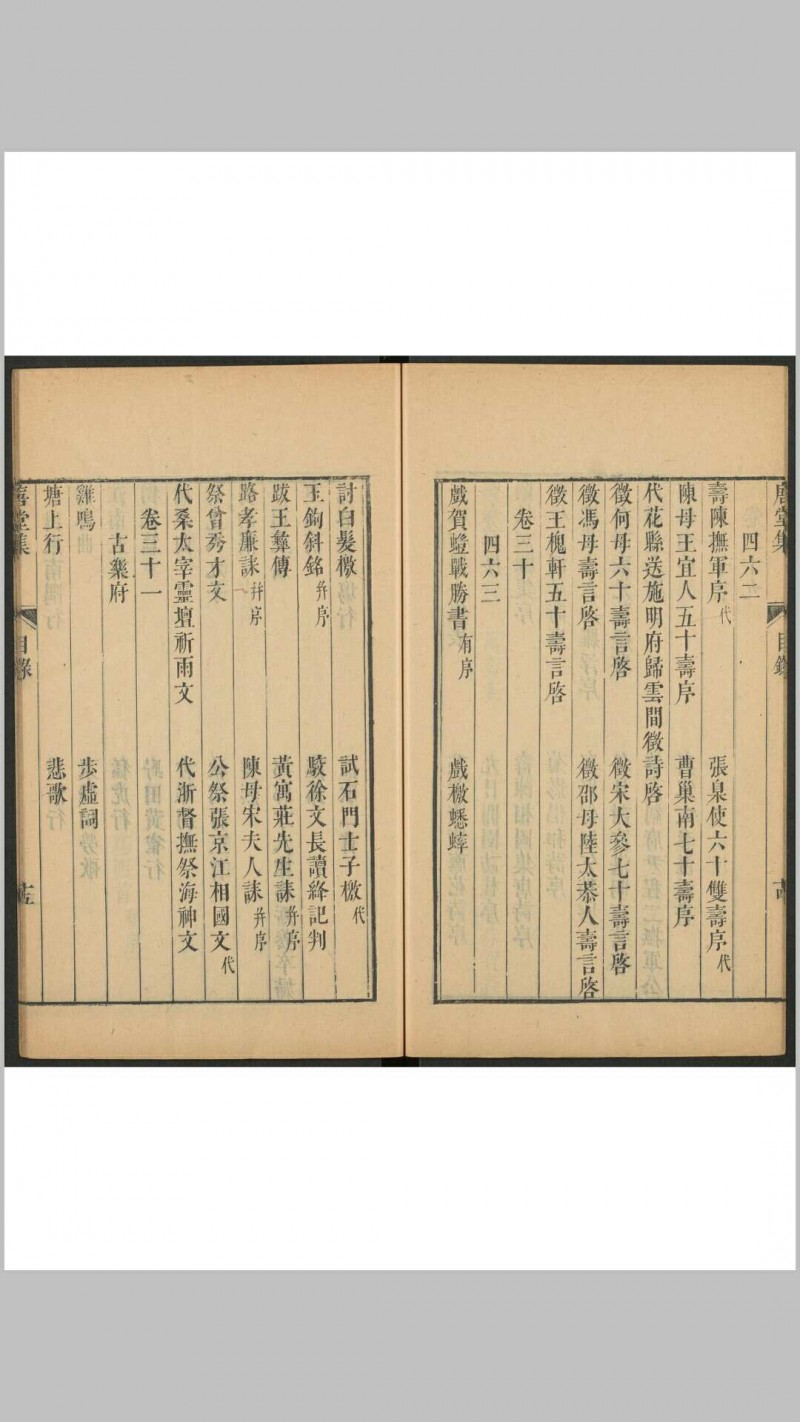 唐堂集 目錄
四六二
壽陳撫軍序代 張臬使六十雙壽序代
陳母王宜人五十壽序 曹巢南七十壽序
代花縣送施明府歸雲間徵詩啓
徵何母六十壽言啓 徵宋大參七十壽言啓
徵馮母壽言啓 徵邵母陸太恭人壽言啓
徵王槐軒五十壽言啓
卷三十
四六三
戲賀螘戰勝書有序 戲檄蟋蟀
討白髮檄 試石門士子檄代
玉鉤斜銘并序 駮徐文長讀絳記判
跋王彝傳 黃寓莊先生誄并序
路孝廉誄并序 陳母宋夫人誄并序
祭曾秀才文 公祭張京江相國文代
代桑太宰靈壇祈雨文 代浙督撫祭海神文
卷三十一
古樂府
雞鳴 步虛詞
塘上行 悲歌
唐堂集 目錄 十五